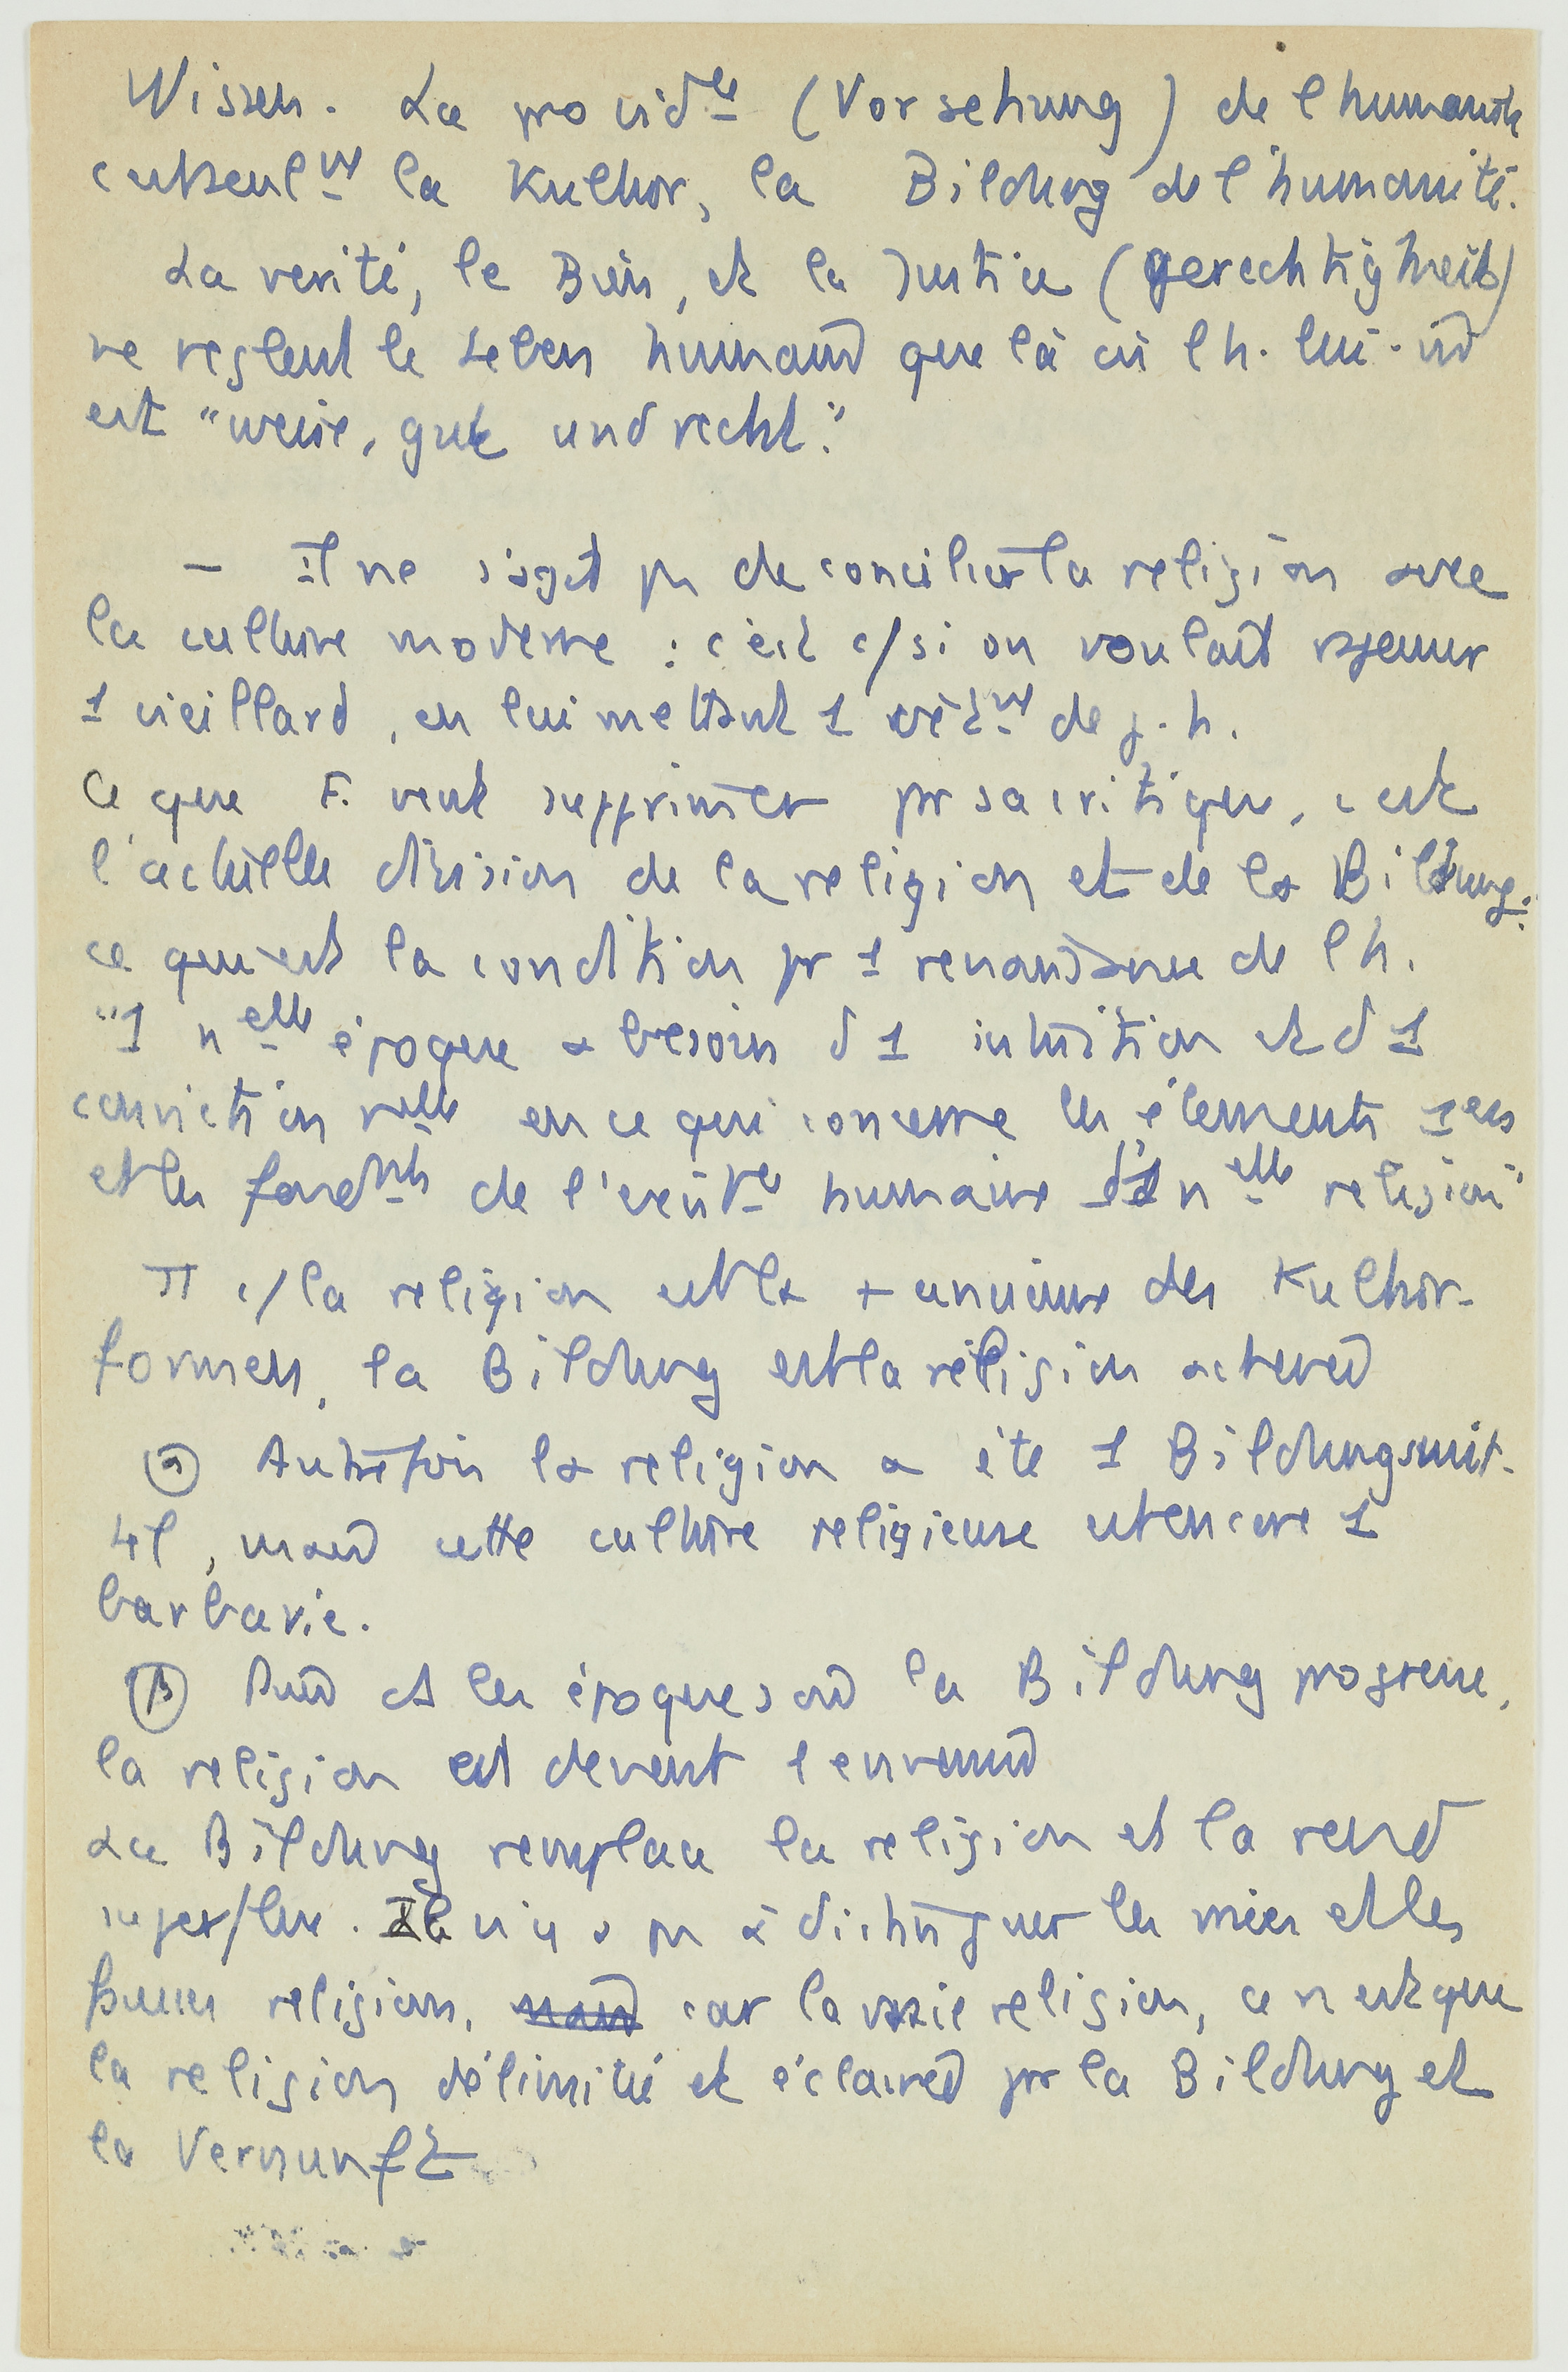 Wissen. La provid^ce (Vorsehung) de l'humanité
c'est seul^mt la Kultur, la Bildung de l'humanité.
La verité, le Bien, et la Justice (Gerechtigkeit)
ne reglent le Leben humain que là où l h. lui-m
est "weise, gut und recht."
— Il ne s'agit pas de concilier la religion avec
la culture moderne : c'est c/ si on voulait rajeunir
1 vieillard, en lui mettant 1 vêt^mt de j. h.
Ce que F. veut supprimer par sa critique, c'est
l'actuelle division de la religion et de la Bildung :
ce qui est la condition pr 1 renaissance de l h.
"1 n^elle époque a besoin d 1 intuition et d 1
conviction n^elle en ce qui concerne les élements 1ers
et les fond^mts de l'exist^ce humaine d'1 n^elle religion"
II c/ la religion est la + ancienne des Kultur-
formen, la Bildung est la religion achevée
(α) Autrefois la religion a été 1 Bildungsmit-
tel, mais cette culture religieuse est encore 1
barbarie.
(β) Puis ds les époques où la Bildung progresse,
la religion est devant l'ennemi
La Bildung remplace la religion et la rend
superflue. Il n'y a pas à distinguer les vraies et les
fausses religions, ~~mais~~ car la vraie religion, ce n'est que
la religion délimitée et éclairée par la Bildung et
la Vernunft